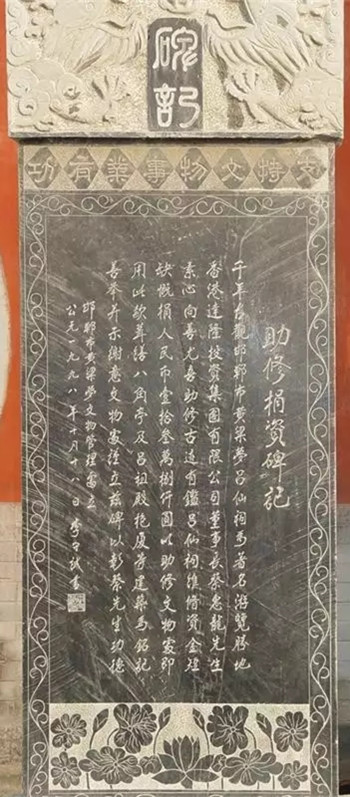 碑記
支持文物事業有功
助修捐资碑记
千年古觀邯郸市黄粱夢吕仙祠為著名游覽勝地
香港達隆投資集團有限公司董事長蔡惠龍先生
素心向善尤喜助修古迹有鑑吕仙祠維修資金短
缺慨捐人民币壹拾叁萬捌仟圆以助修文物處即
用此款葺缮八角亭及吕祖殿抱厦等建築為铭記
善举并示谢意文物處立兹碑以彰蔡先生功德
邯郸市黄粱夢文物管理處立
公元一九九八年十月十八日 書